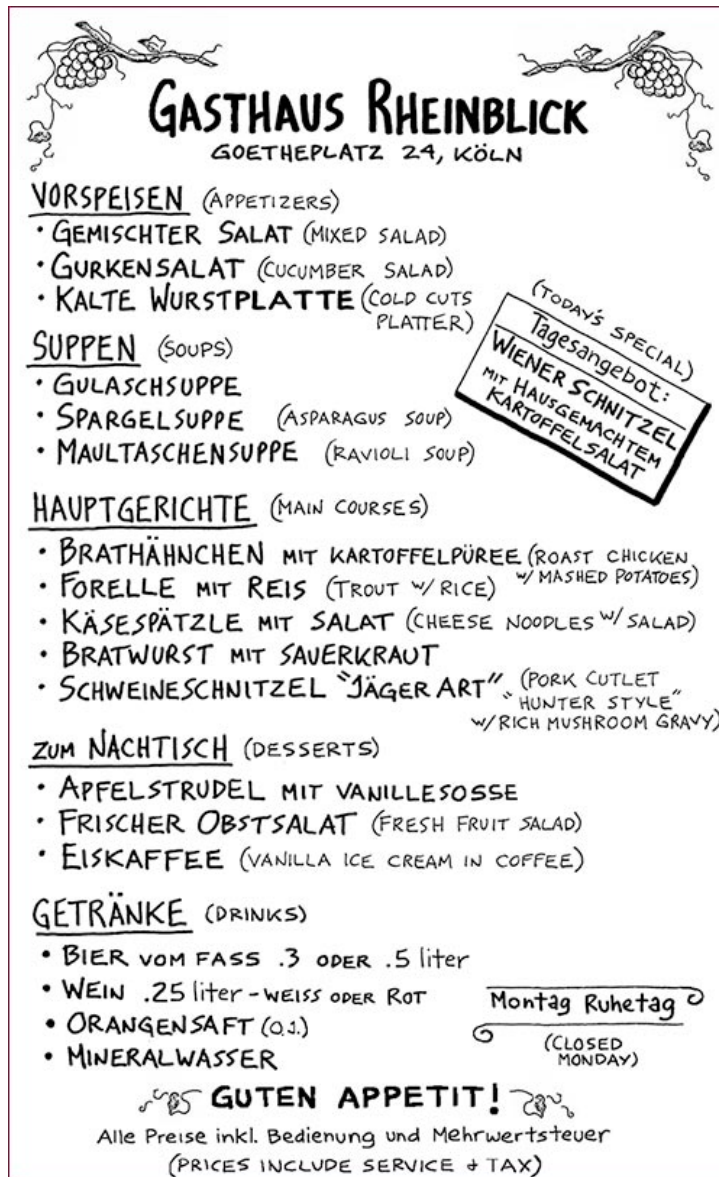 GASTHAUS RHEINBLICK
GOETHEPLATZ 24, KÖLN
VORSPEISEN (APPETIZERS)
• GEMISCHTER SALAT (MIXED SALAD)
• GURKENSALAT (CUCUMBER SALAD)
• KALTE WURSTPLATTE (COLD CUTS
PLATTER)
(TODAY'S SPECIAL)
Tagesangebot:
WIENER SCHNITZEL
MIT HAUSGEMACHTEM
KARTOFFELSALAT
SUPPEN (SOUPS)
• GULASCHSUPPE
• SPARGELSUPPE (ASPARAGUS SOUP)
• MAULTASCHENSUPPE (RAVIOLI SOUP)
HAUPTGERICHTE (MAIN COURSES)
• BRATHÄHNCHEN MIT KARTOFFELPÜREE (ROAST CHICKEN
W/ MASHED POTATOES)
• FORELLE MIT REIS (TROUT W/ RICE)
• KÄSESPÄTZLE MIT SALAT (CHEESE NOODLES W/ SALAD)
• BRATWURST MIT SAUERKRAUT
• SCHWEINESCHNITZEL "JÄGER ART" (PORK CUTLET
"HUNTER STYLE"
W/ RICH MUSHROOM GRAVY)
ZUM NACHTISCH (DESSERTS)
• APFELSTRUDEL MIT VANILLESOSSE
• FRISCHER OBSTSALAT (FRESH FRUIT SALAD)
• EISKAFFEE (VANILLA ICE CREAM IN COFFEE)
GETRÄNKE (DRINKS)
• BIER VOM FASS .3 ODER .5 liter
• WEIN .25 liter - WEISS ODER ROT
• ORANGENSAFT (O.J.)
• MINERALWASSER
Montag Ruhetag
(CLOSED
MONDAY)
GUTEN APPETIT!
Alle Preise inkl. Bedienung und Mehrwertsteuer
(PRICES INCLUDE SERVICE + TAX)